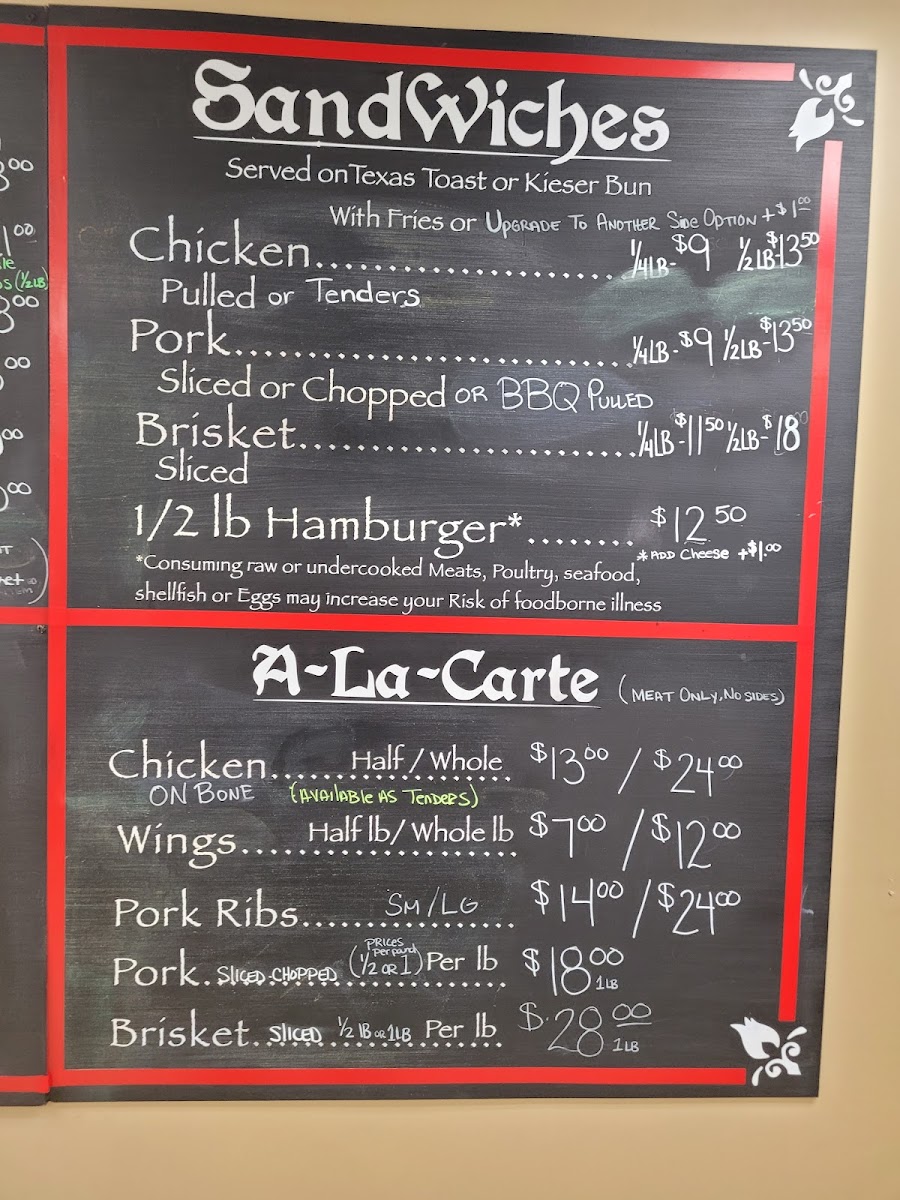 SandWiches
Served on Texas Toast or Kieser Bun
With Fries or UPGRADE TO ANOTHER Side OPTION +$1.00
Chicken.......................... 1/4LB-$9 1/2LB-$13.50
Pulled or Tenders
Pork.......................... 1/4LB-$9 1/2LB-$13.50
Sliced or Chopped OR BBQ PULLED
Brisket.......................... 1/4LB-$11.50 1/2LB-$18
Sliced
1/2 lb Hamburger*........ $12.50
*ADD Cheese +$1.00
*Consuming raw or undercooked Meats, Poultry, seafood,
shellfish or Eggs may increase your Risk of foodborne illness
A-La-Carte (MEAT ONLY, NO SIDES)
Chicken...... Half / Whole $13.00 / $24.00
ON BONE (AVAILABLE AS TENDERS)
Wings...... Half lb/ Whole lb $7.00 / $12.00
Pork Ribs...... SM/LG $14.00 / $24.00
Pork. SLICED-CHOPPED (PRICES Per pound 1/2 OR 1) Per lb $18.00 1LB
Brisket. SLICED 1/2 LB OR 1LB Per lb $.28.00 1LB